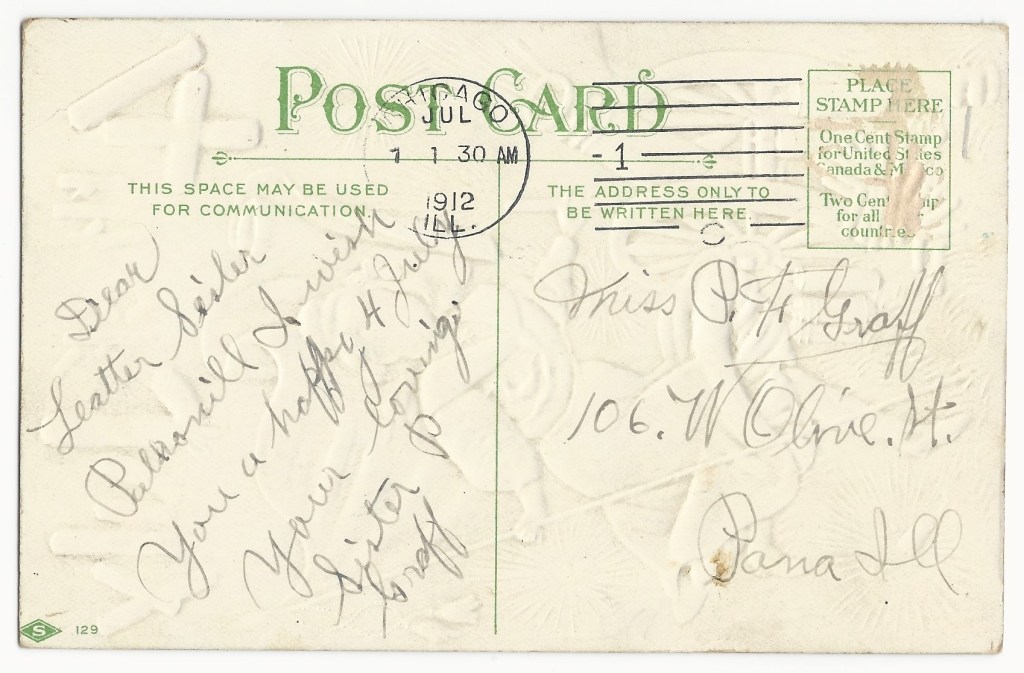 POST CARD
CHICAGO
JUL
1 1 30 AM
1912
ILL.
1
PLACE
STAMP HERE
One Cent Stamp
for United States
Canada & Mexico
Two Cent
for all
countries
THIS SPACE MAY BE USED
FOR COMMUNICATION.
THE ADDRESS ONLY TO
BE WRITTEN HERE.
Dear
Sister
I wish
You a happy 4 July
Your loving
Sister P
Graff
Miss P. H Graff
106. W Olive. St.
Pana Ill
S 129